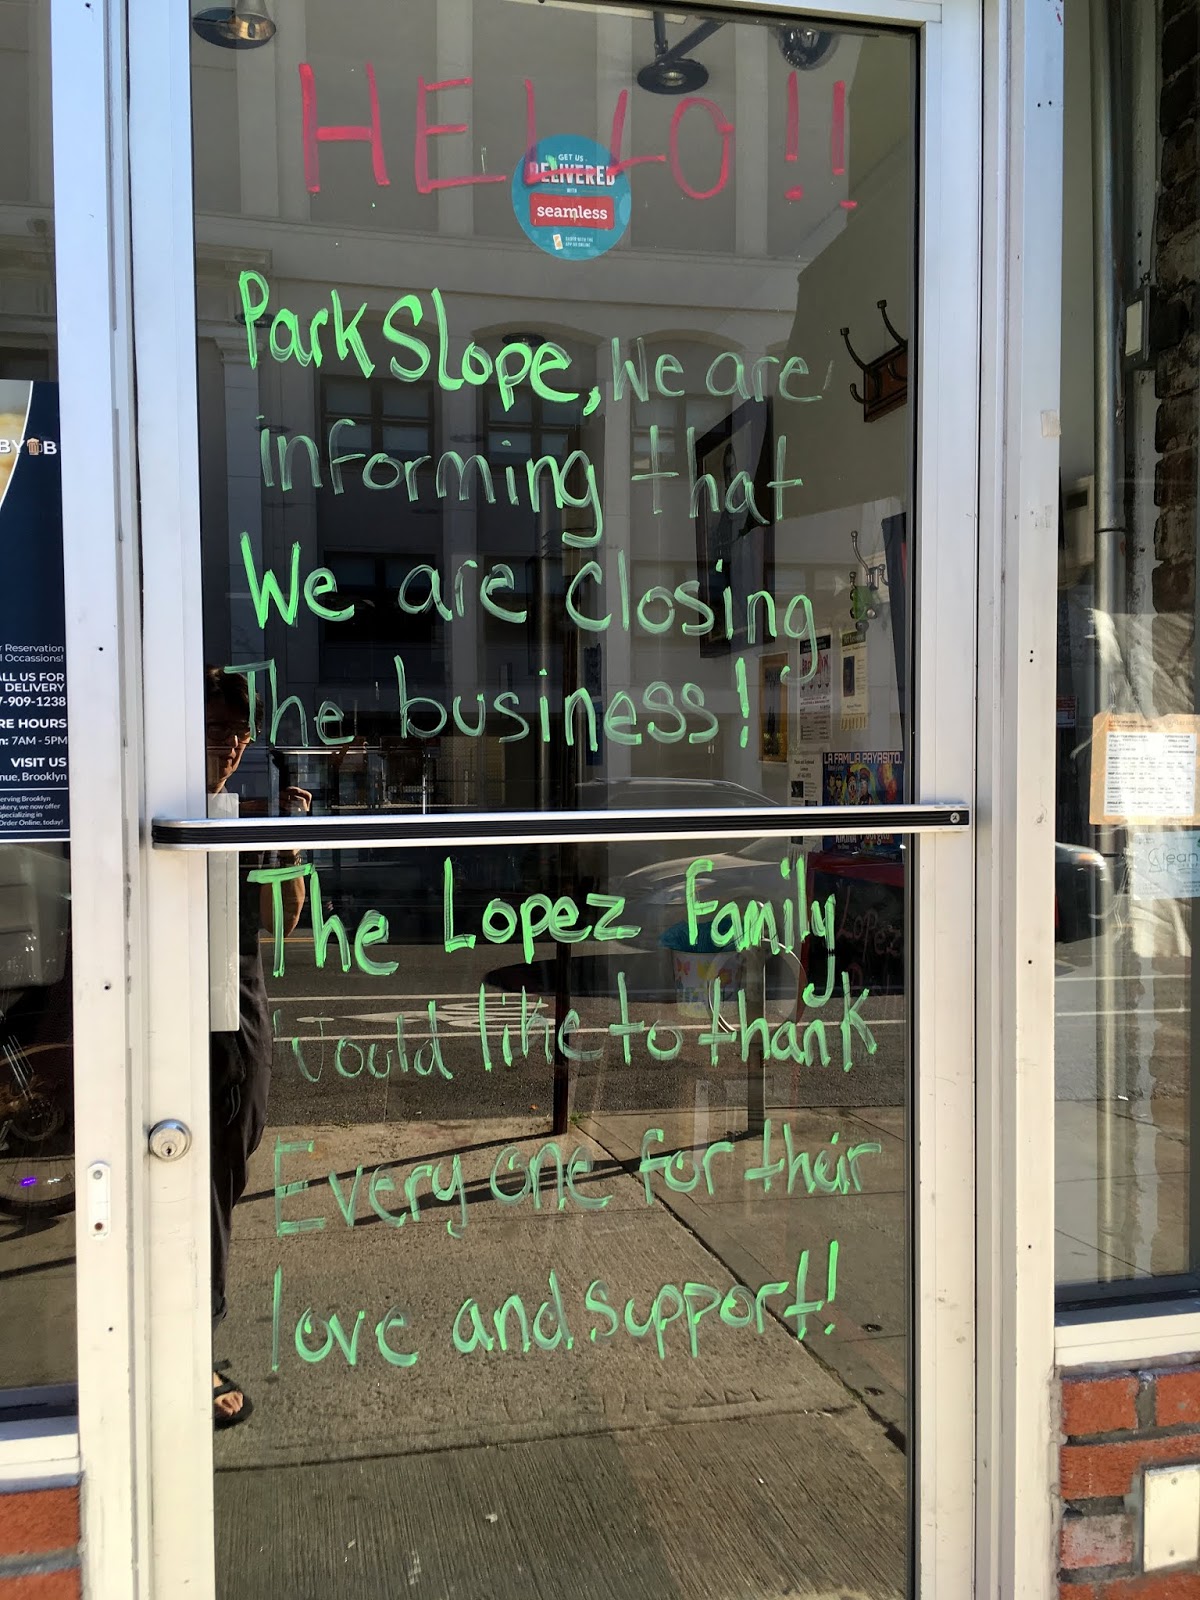 HELLO!!
GET US
DELIVERED
WITH
seamless
Park Slope, We are
informing that
We are closing
The business!
The Lopez Family
Would like to thank
Every one for their
love and support!
BY B
r Reservation
l Occassions!
ALL US FOR
DELIVERY
7-909-1238
RE HOURS
n: 7AM - 5PM
VISIT US
nue, Brooklyn
erving Brooklyn
akery, we now offer
Specializing in
Order Online, today!
LA FAMILIA PAYASITO
Lopez
lean